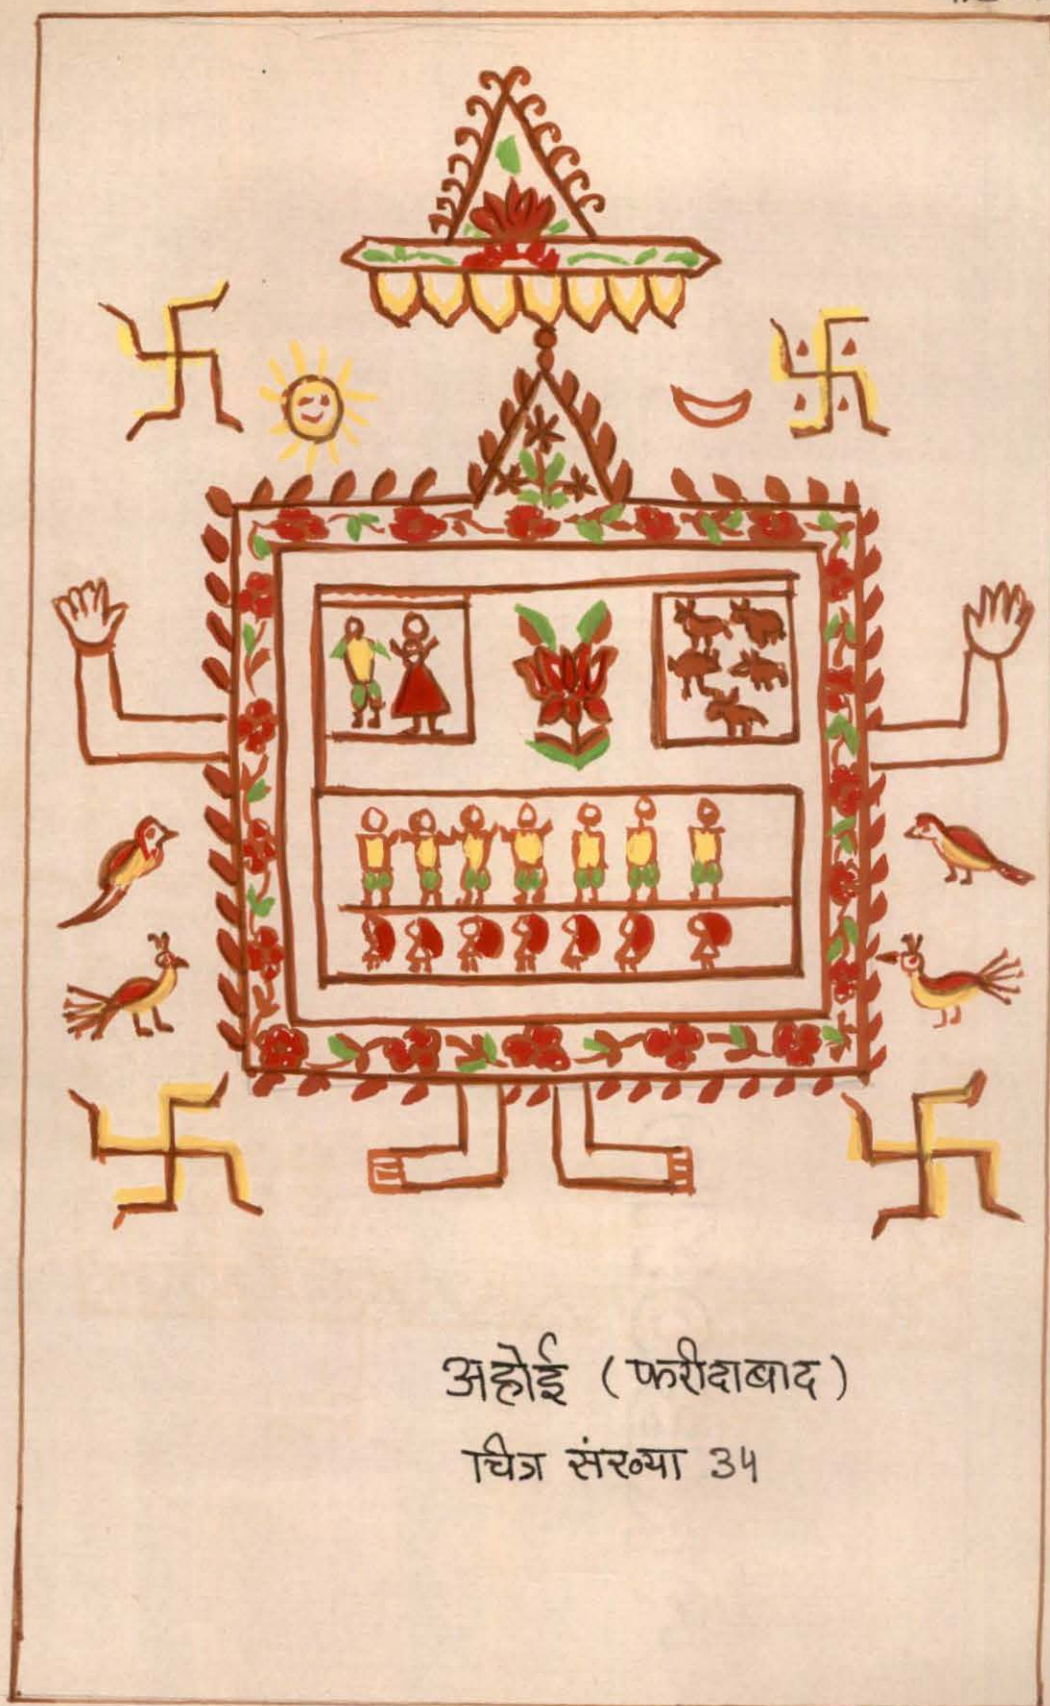 अहोई (फरीदाबाद)
चित्र संख्या 34